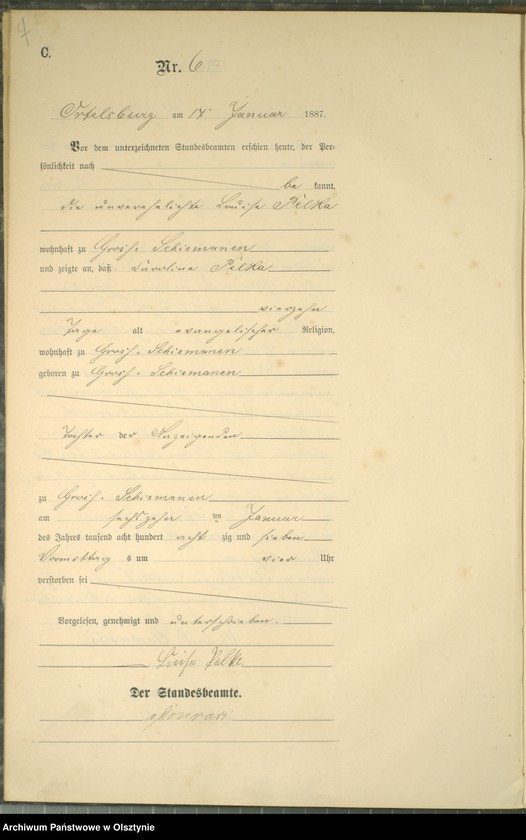 7
C.
Nr. 6
Ortelsburg am 17 Januar 1887.
Vor dem unterzeichneten Standesbeamten erschien heute, der Per-
sönlichkeit nach
be kannt,
die unverehelichte Louise Pilka
wohnhaft zu Gross-Schiemanen
und zeigte an, daß Caroline Pilka
vierzehn
Tage alt evangelischer Religion,
wohnhaft zu Gross-Schiemanen
geboren zu Gross-Schiemanen
Tochter der Anzeigenden
zu Gross-Schiemanen
am sechszehn ten Januar
des Jahres tausend acht hundert acht zig und sieben
Vormittag s um vier Uhr
verstorben sei
Vorgelesen, genehmigt und unterschrieben.
Luise Pilka
Der Standesbeamte.
Archiwum Państwowe w Olsztynie